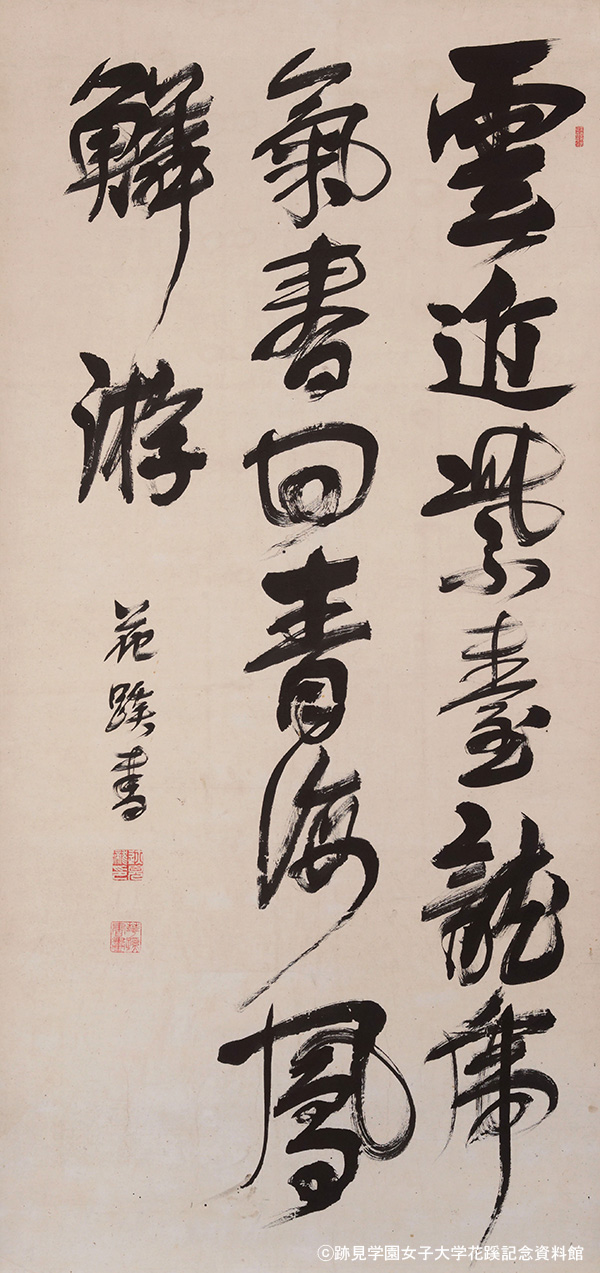 雲近紫臺龍虎
氣春回青海鳳
麟游
花蹊書
©跡見学園女子大学花蹊記念資料館